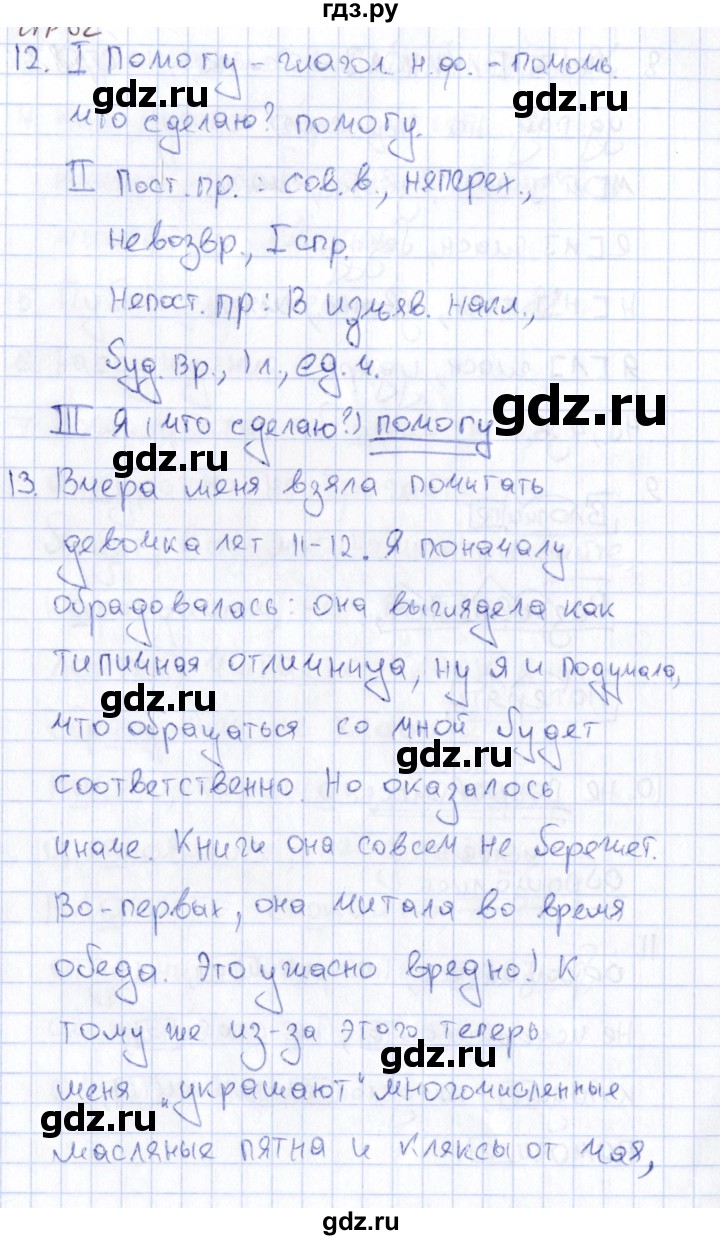 гдз.ру
12. I Помогу – глагол н.ф. – помочь.
gdz.ru
что сделаю? помогу.
gdz.ru
II Пост. пр.: сов.в., неперех.,
gdz.ru
невозвр., I спр.
Непост. пр: В изъяв. накл.,
gdz.ru
буд. вр., 1 л., ед.ч.
gdz.ru
III Я (что сделаю?) помогу
gdz.ru
13. Вчера меня взяла почитать
девочка лет 11-12. Я поначалу
gdz.ru
обрадовалась: она выглядела как
gdz.ru
типичная отличница, ну я и подумала,
gdz.ru
что обращаться со мной будет
gdz.ru
соответственно. Но оказалось
иначе. Книги она совсем не бережет.
gdz.ru
Во-первых, она читала во время
gdz.ru
обеда. Это ужасно вредно! К
тому же из-за этого теперь
gdz.ru
меня "украшают" многочисленные
gdz.ru
масляные пятна и кляксы от чая,
gdz.ru